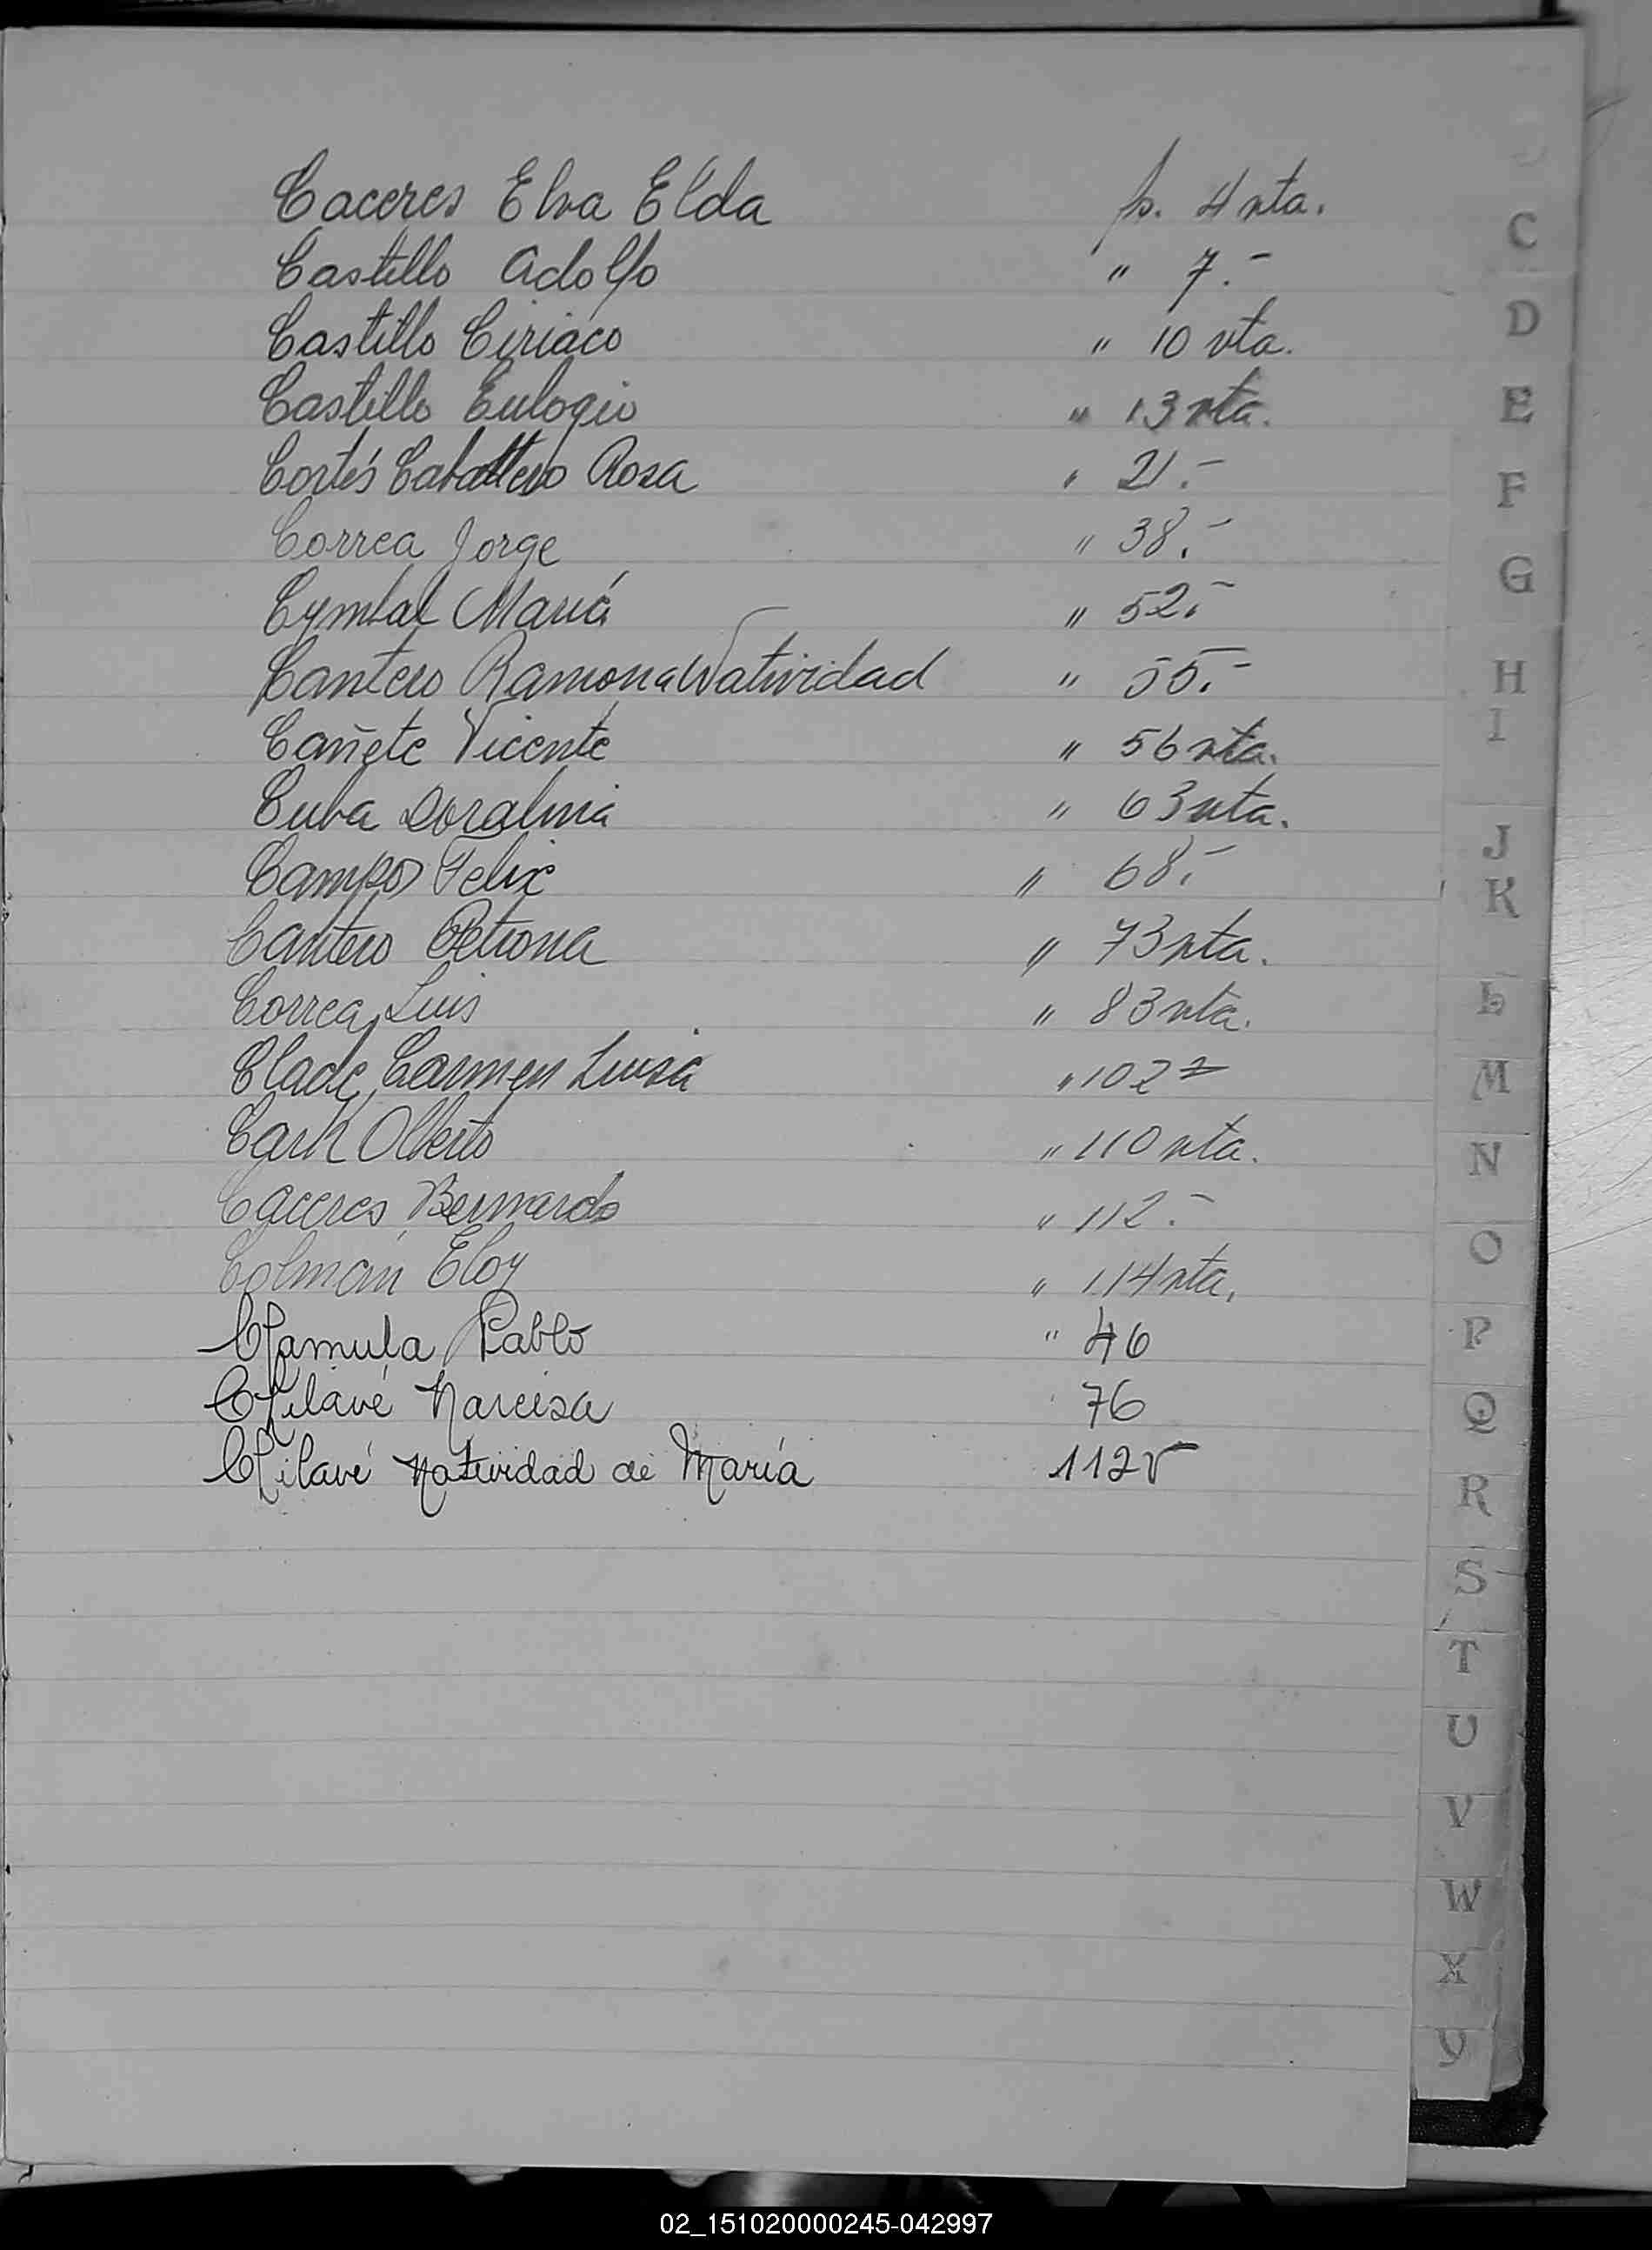 Caceres Elva Elda p. 4 vta.
Castillo Adolfo " 7.-
Castillo Ciriaco " 10 vta.
Castillo Eulogio " 13 vta.
Cortés Caballero Rosa " 21.-
Correa Jorge " 38.-
Cymbal María " 52.-
Cantero Ramona Natividad " 55.-
Cañete Vicente " 56 vta.
Cuba Doralina " 63 vta.
Campos Felix " 68.-
Cantero Petrona " 73 vta.
Correa Luis " 83 vta.
Clade Carmen Luisa " 102
Alberto " 110 vta.
Caceres Bernardo " 112.-
Colmán Eloy " 114 vta.
Chamula Pablo " 46
Chilavé Narcisa 76
Chilavé Natividad de María 112v
C
D
E
F
G
H
I
J
K
L
M
N
O
P
Q
R
S
T
U
V
W
X
Y
02_151020000245-042997